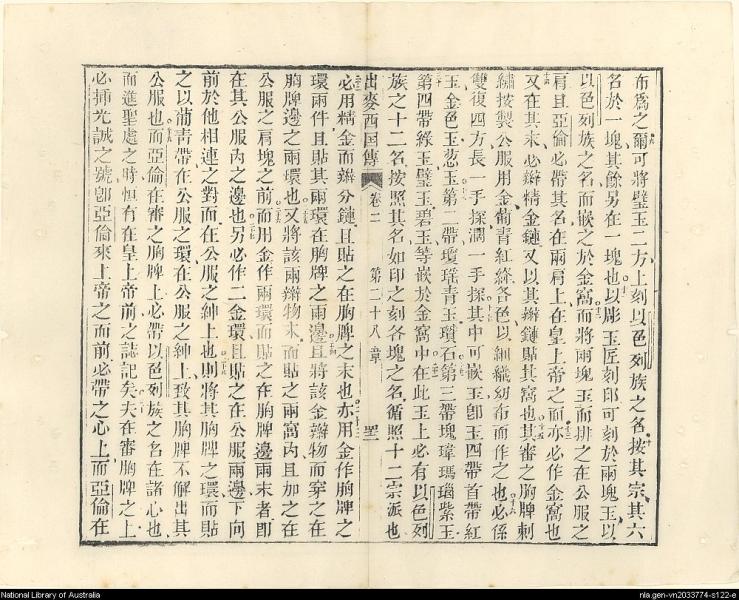 布爲之爾可將璧玉二方上刻以色列族之名按其宗其六
名於一塊其餘另在一塊也以彫玉匠刻印可刻於兩塊玉以
以色列族之名而嵌之於金窩而將兩塊玉而排之在公服之
肩且亞倫必帶其名在兩肩上在皇上帝之而亦必作金窩也
又在其末必辮精金鏈又以其辮鏈貼其窩也其審之胸牌刺
繡按製公服用金葡青紅綠各色以細織幼布而作之也必係
雙復四方長一手探濶一手探其中可嵌玉卽玉四帶首帶紅
玉金色玉葱玉第二帶瓊瑤青玉瓚石第三帶塊瑋瑪瑙紫玉
第四帶綠玉璧玉碧玉等嵌於金窩中在此玉上必有以色列
族之十二名按照其名如印之刻各塊之名循照十二宗派也
出麥西國傳 卷二 第二十八章
必用精金而辮分鏈且貼之在胸牌之末也亦用金作胸牌之
環兩件且貼其兩環在胸牌之兩邊且將該金辮物而穿之在
胸牌邊之兩環也又將該兩辮物末而貼之兩窩內且加之在
公服之肩塊之前而用金作兩環而貼之在胸牌邊兩末者卽
在其公服內之邊也另必作二金環且貼之在公服兩邊下向
前於他相連之對面在公服之紳上也則將其胸牌之環而貼
之以葡青帶在公服之環在公服之紳上致其胸牌不解出其
公服也而亞倫在審之胸牌上必帶以色列族之名在諸心也
而進聖處之時恒有在皇上帝前之誌記矣夫在審胸牌之上
必揷光誠之號卽亞倫來上帝之而前必帶之心上而亞倫在
National Library of Australia
nla.gen-vn2033774-s122-e